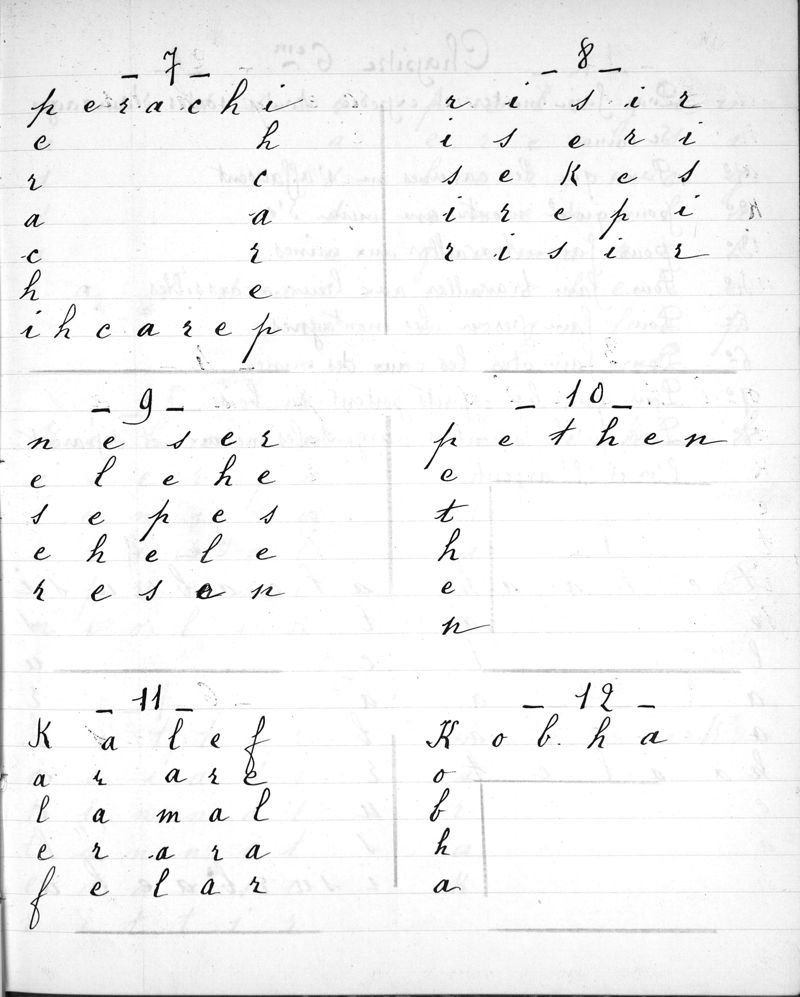 _ 7 _
p e r a c h i
e h
r c
a a
c r
h e
i h c a r e p
_ 8 _
r i s i r
i s e r i
s e K e s
i r e p i
r i s i r
_ 9 _
n e s e r
e l e h e
s e p e s
e h e l e
r e s e n
_ 10 _
p e t h e n
e
t
h
e
n
_ 11 _
K a l e f
a r a r e
l a m a l
e r a r a
f e l a r
_ 12 _
K o b h a
o
b
h
a